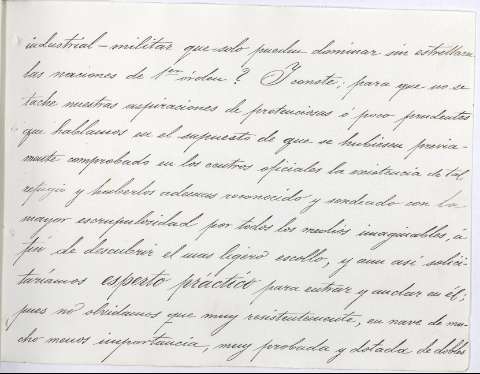 industrial-militar que solo pueden dominar sin estrellarse
las naciones de 1er orden? Y conste; para que no se
tache nuestras aspiraciones de pretenciosas ó poco prudentes
que hablamos en el supuesto de que se hubiesen previa-
mente comprobado en los centros oficiales la existencia de tal
refugio y haberlos ademas reconocido y sondeado con la
mayor escrupulosidad por todos los medios imaginables, á
fin de descubrir el mas ligero escollo, y aun así solici-
taríamos esperto práctico para entrar y anclar en él;
pues no olvidamos que muy recientemente, en nave de mu-
cho menos importancia, muy probada y dotada de dobles